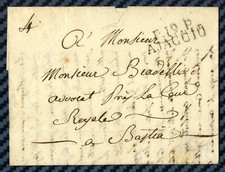 4
P.19.P.
AJACCIO
À Monsieur
Monsieur
avocat près la Cour
Royale
a Bastia